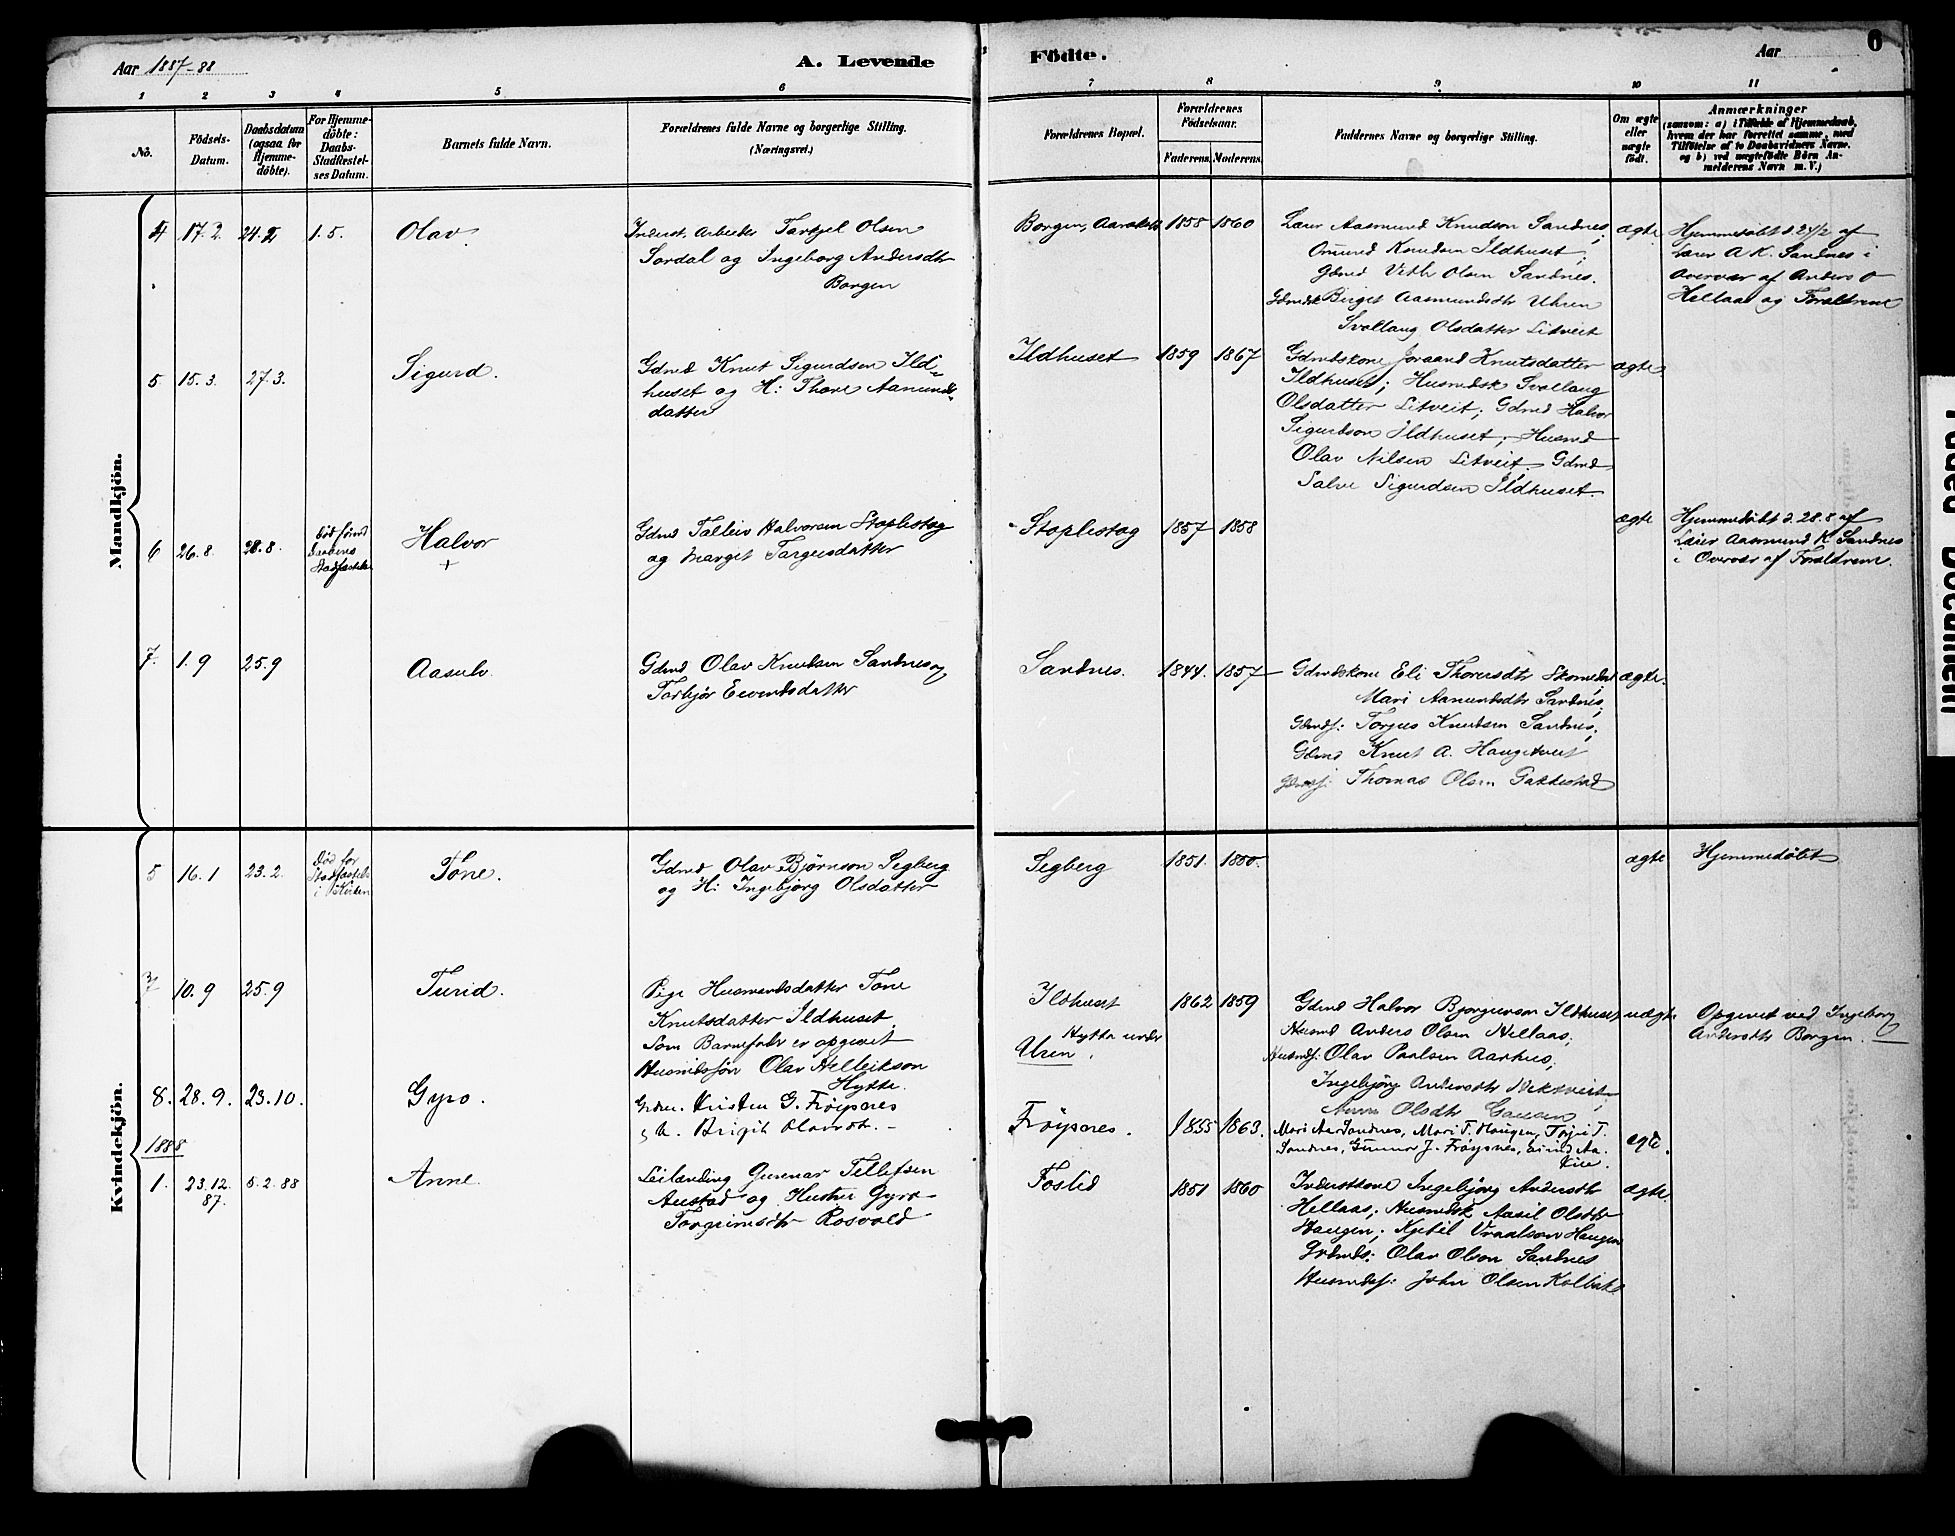 Aar 1887-88
A. Levende
Födte.
Aar
6
1 2 3 4 5 6 7 8 9 10 11
No.
Födsels-
Datum.
Daabsdatum
(ogsaa for
Hjemme-
döbte).
For Hjemme-
döbte:
Daabs-
Stadfæstel-
ses Datum.
Barnets fulde Navn.
Forældrenes fulde Navne og borgerlige Stilling.
(Næringsvei.)
Forældrenes Bopæl.
Forældrenes
Födselsaar.
Faderens. Moderens.
Faddernes Navne og borgerlige Stilling.
Om ægte
eller
uægte
födt.
Anmærkninger
(saasom: a) i Tilfælde af Hjemmedaab,
hvem der har forrettet samme, med
Tilföielse af to Daabsvidners Navne.
og b) ved uægtefödte Börn An-
melderens Navn m. V.)
Mandkjön.
4 17.2. 24.2 1.5. Olav.
Inderst, Arbeider Tarkjel Olsen
Sordal og Ingeborg Andersdtr
Borgen
Borgen, 1858 1860
Lærer Aasmund Knudson Sandnes;
Omund Knudsen Ildhuset;
Gdmd Olsen Sandnes.
Gdmdsk Birget Aasmundsdtr Uhren
Svallaug Olsdatter Litveit
ægte
Hjemmedøbt d. 24/2 af
Lærer A K. Sandnes i
Overvær af Anders O
Hellaas og Forældrene
5 15.3. 27.3. Sigurd.
Gdmd Knut Sigurdsen Ild-
huset og H: Thore Aamunds-
datter
Ildhuset 1859 1867
Gdmdskone Joraand Knutsdatter
Ildhuset; Husmdsk Svallaug
Olsdatter Litveit; Gdmd Halvor
Sigurdson Ildhuset; Husmd
Olav Nilsen Litveit. Gdmd
Salve Sigurdsen Ildhuset.
ægte
6 26.8. 28.8. død førend
Daabens
Stadfæstelse
Halvor
+
Gdmd Talleiv Halvorsen Stoplestog
og Marget Targusdatter
Stoplestog 1857 1858
ægte
Hjemmedøbt d. 28.8 af
Lærer Aasmund K. Sandnes
i Overvær af Forældrene.
7. 1.9 25.9 Aasulv.
Gdmd Olav Knutsen Sandnes og
Torbjør Eivindsdatter
Sandnes. 1844. 1857
Gdmdskone Eli Thorersdtr
Mari Aamundsdtr Sandnes;
Gdmdf: Torjus Knudsen Sandnes;
Gdmd Knut A. Haugetveit
Gdmdf: Thomas Olsen Gakkestad
ægte.
Kvindekjön.
5 16.1 23.2. Død før
Stadfæstelse
i Kirken
Tone.
Gdmd Olav Bjørnson Segberg
og H: Ingebjørg Olsdatter
Segberg 1851. 1850.
ægte
Hjemmedøbt
7 10.9 25.9 Turid.
Pige Husmandsdatter Tone
Knutsdatter Ildhuset
Som Barnefader er opgivet
Husmdsøn Olav Helleikson
Hytte.
Ildhuset
Hytta under
Uren. 1862 1859
Gdmd Halvor Bjorgusson Ildhuset
Husmd Anders Olsen Hellaas;
Husmdsf: Olav Paalsen Aarhus;
Ingebjörg Andersdtr
Anne Olsdtr
uægte
Opgivet ved Ingeborg
Andersdtr Borgen.
8. 28.9. 23.10. Gyro.
Gdm. Kristen G. Frøysnes
og h. Birgit Olavsdt.
Frøysnes. 1855 1863.
Mari Aa. Sandnes, Mari T. Haugen, Torjus T.
Sandnes, Gunnar J. Frøysnes, Eivind Aa.
ægte.
1888
1. 23.12.
87. 5.2.88 Anne.
Leilending Gunnar Tellefsen
Austad og Hustru Gyro
Torgrimsdtr Rosvold
Foslid 1851 1860
Inderstkone Ingebjörg Andersdtr
Hellaas; Husmdsk Aasil Olsdtr
Haugen; Kjetil Vraalson Haugen
Grdmds: Olav Olson Sandnes
Husmdsf: John Olsen
ægte